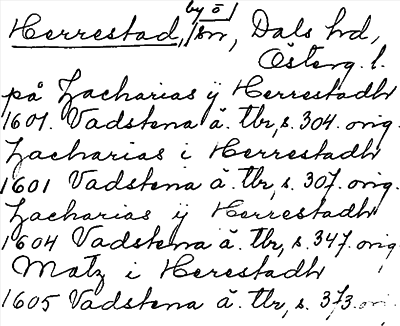 Herrestad, by o /sn, Dals hd,
Österg. l.
på Zacharias ÿ Herrestadh
1601. Vadstena ä. Tbr, s. 304. orig.
Zacharias i Herrestadh
1601 Vadstena ä. Tbr, s. 307. orig.
Zacharias ÿ Herrestadh
1604 Vadstena ä. Tbr, s. 347. orig.
Matz i Herestadh
1605 Vadstena ä. Tbr, s. 373. orig.